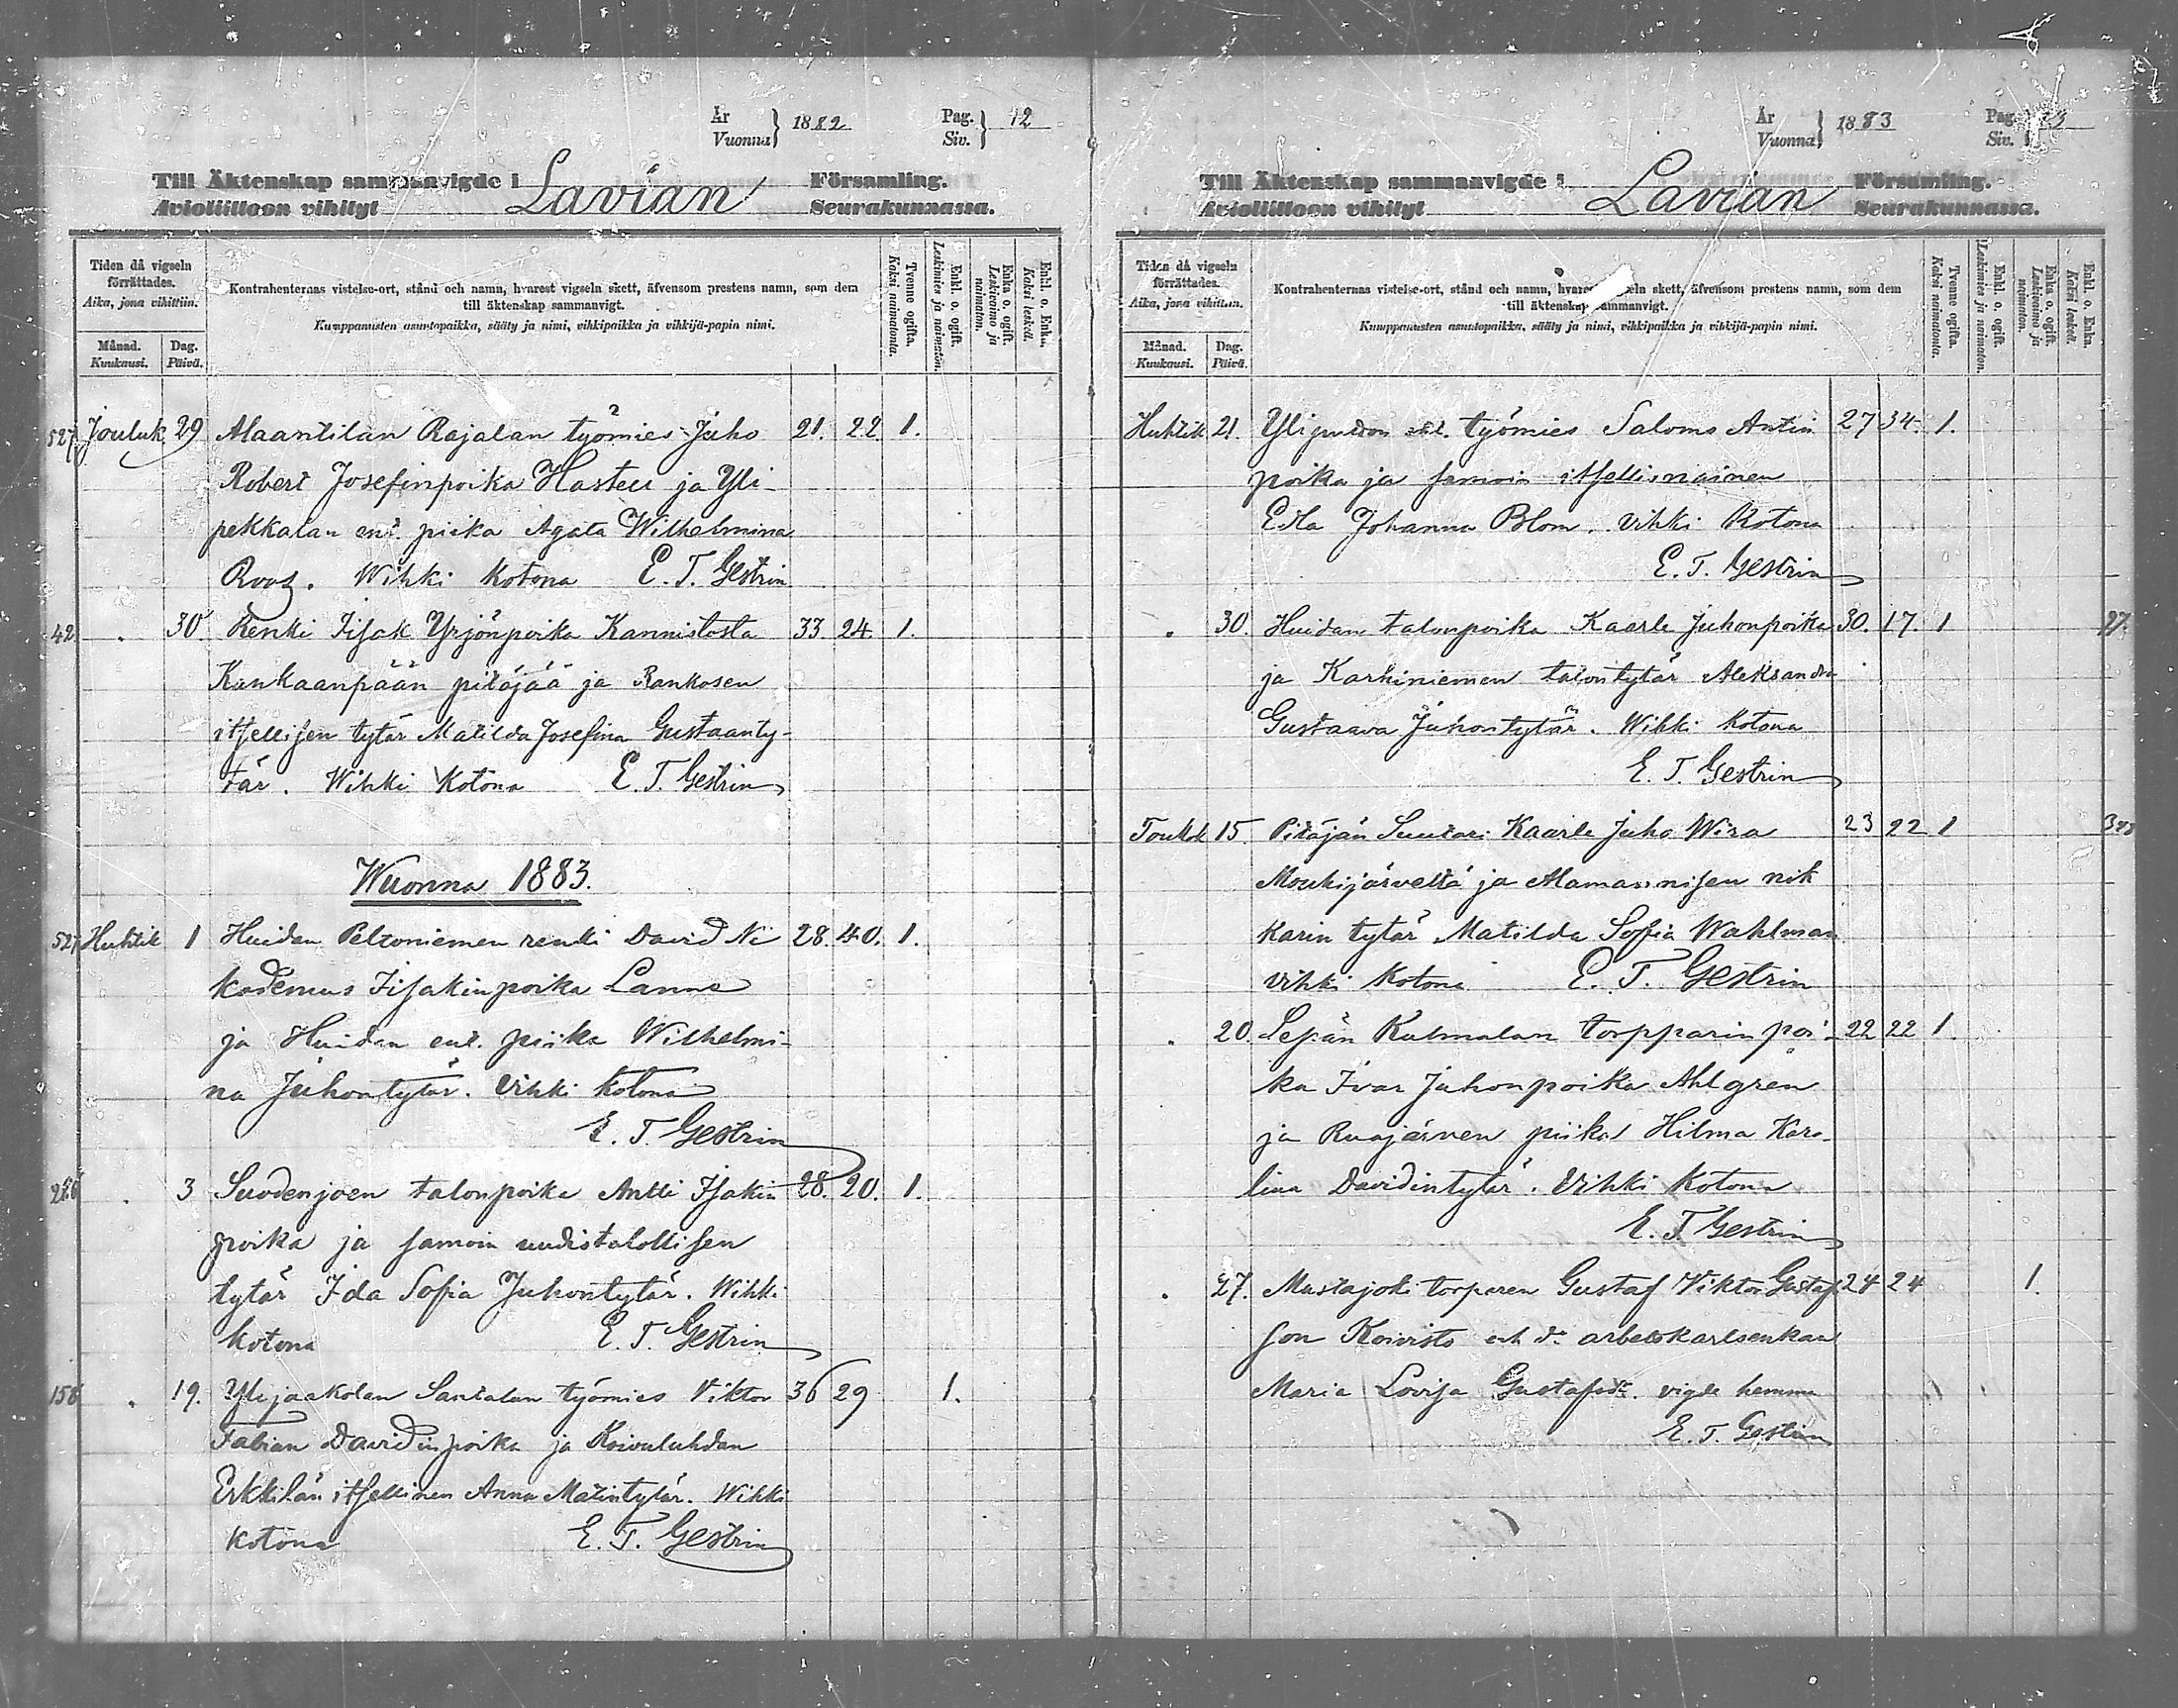 År
Vuonna } 1882 Pag.
Siv. } 12
Till Äktenskap sammanvigde i Lavian Församling.
Avioliittoon vihityt Seurakunnassa.
Tiden då vigseln
förrättades.
Aika, jona vihittiin.
Månad.
Kuukausi.
Dag.
Päivä.
Kontrahenternas vistelse-ort, stånd och namn, hvarest vigseln skett, äfvensom prestens namn, som dem
till äktenskap sammanvigt.
Kumppanusten asuntopaikka, sääty ja nimi, vihkipaikka ja vihkijä-papin nimi.
Tvenne ogifta.
Kaksi naimatonta.
Enkl. o. ogift.
Leskimies ja naimaton.
Enka o. ogift.
Leskivaimo ja
naimaton.
Enkl. o. Enka.
Kaksi leskeä.
527 Jouluk 29 Alaantilan Rajalan työmies Juho 21. 22 1.
Robert Josefinpoika Hasteu ja Yli-
pekkalan ent. piika Agata Wilhelmina
Roos. Wihki kotona E. T. Gestrin
42 . 30 Renki Iisak Yrjönpoika Kannistosta 33 24 1.
Kankaanpään pitäjää ja Rankosen
itsellisen tytär Matilda Josefina Gustaanty-
tär. Wihki Kotona E. T. Gestrin
Wuonna 1883.
527 Huhtik 1 Huidan Peltoniemen renki David Ni 28. 40. 1.
kodemus Iisakinpoika Lanne
ja Huidan ent. piika Wilhelmi-
na Juhontytär. Vihki kotona
E. T. Gestrin
. 3 Suodenjoen talonpoika Antti Isakin 28. 20. 1.
poika ja samoin uudistalollisen
tytär Ida Sofia Juhontytär. Wihki
kotona E. T. Gestrin
156 . 19. Ylijaakolan Santalan työmies Viktor 36 29 1.
Fabian Davidinpoika ja Koivuluhdan
Erkkilän itsellinen Anna Matintytär. Wihki
kotona E. T. Gestrin
År
Vuonna } 1883 Pag.
Siv. }
Till Äktenskap sammanvigde i Lavian Församling.
Avioliittoon vihityt Seurakunnassa.
Tiden då vigseln
förrättades.
Aika, jona vihittiin.
Månad.
Kuukausi.
Dag.
Päivä.
Kontrahenternas vistelse-ort, stånd och namn, hvarest vigseln skett, äfvensom prestens namn, som dem
till äktenskap sammanvigt.
Kumppanusten asuntopaikka, sääty ja nimi, vihkipaikka ja vihkijä-papin nimi.
Tvenne ogifta.
Kaksi naimatonta.
Enkl. o. ogift.
Leskimies ja naimaton.
Enka o. ogift.
Leskivaimo ja
naimaton.
Enkl. o. Enka.
Kaksi leskeä.
Huhtik 21. työmies Salomo Antin 27 34 1.
poika ja samoin itsellisnainen
Edla Johanna Blom. Vihki Kotona
E. T. Gestrin
. 30. Huidan talonpoika Kaarle Juhonpoika 30. 17. 1 27.
ja Karhiniemen talontytär Aleksandra
Gustaava Juhontytär. Wihki Kotona
E. T. Gestrin
Toukok 15. Pitäjän Suutari Kaarle Juho Wisa 23 22 1
Mouhijärveltä ja nik
karin tytär Matilda Sofia Wahlman
vihki Kotona E. T. Gestrin
. 20. Sepän Kulmalan torpparin poi- 22 22 1.
ka Ivar Juhonpoika Ahlgren
ja Ruajärven piika Hilma Karo-
lina Davidintytär. Vihki Kotona
E. T. Gestrin
. 27. Mustajoki torparen Gustaf Viktor Gustaf 24 24 1.
son Koivisto och do arbetskarlsenkan
Maria Lovisa Gustafsdr. vigde hemma
E. T. Gestrin